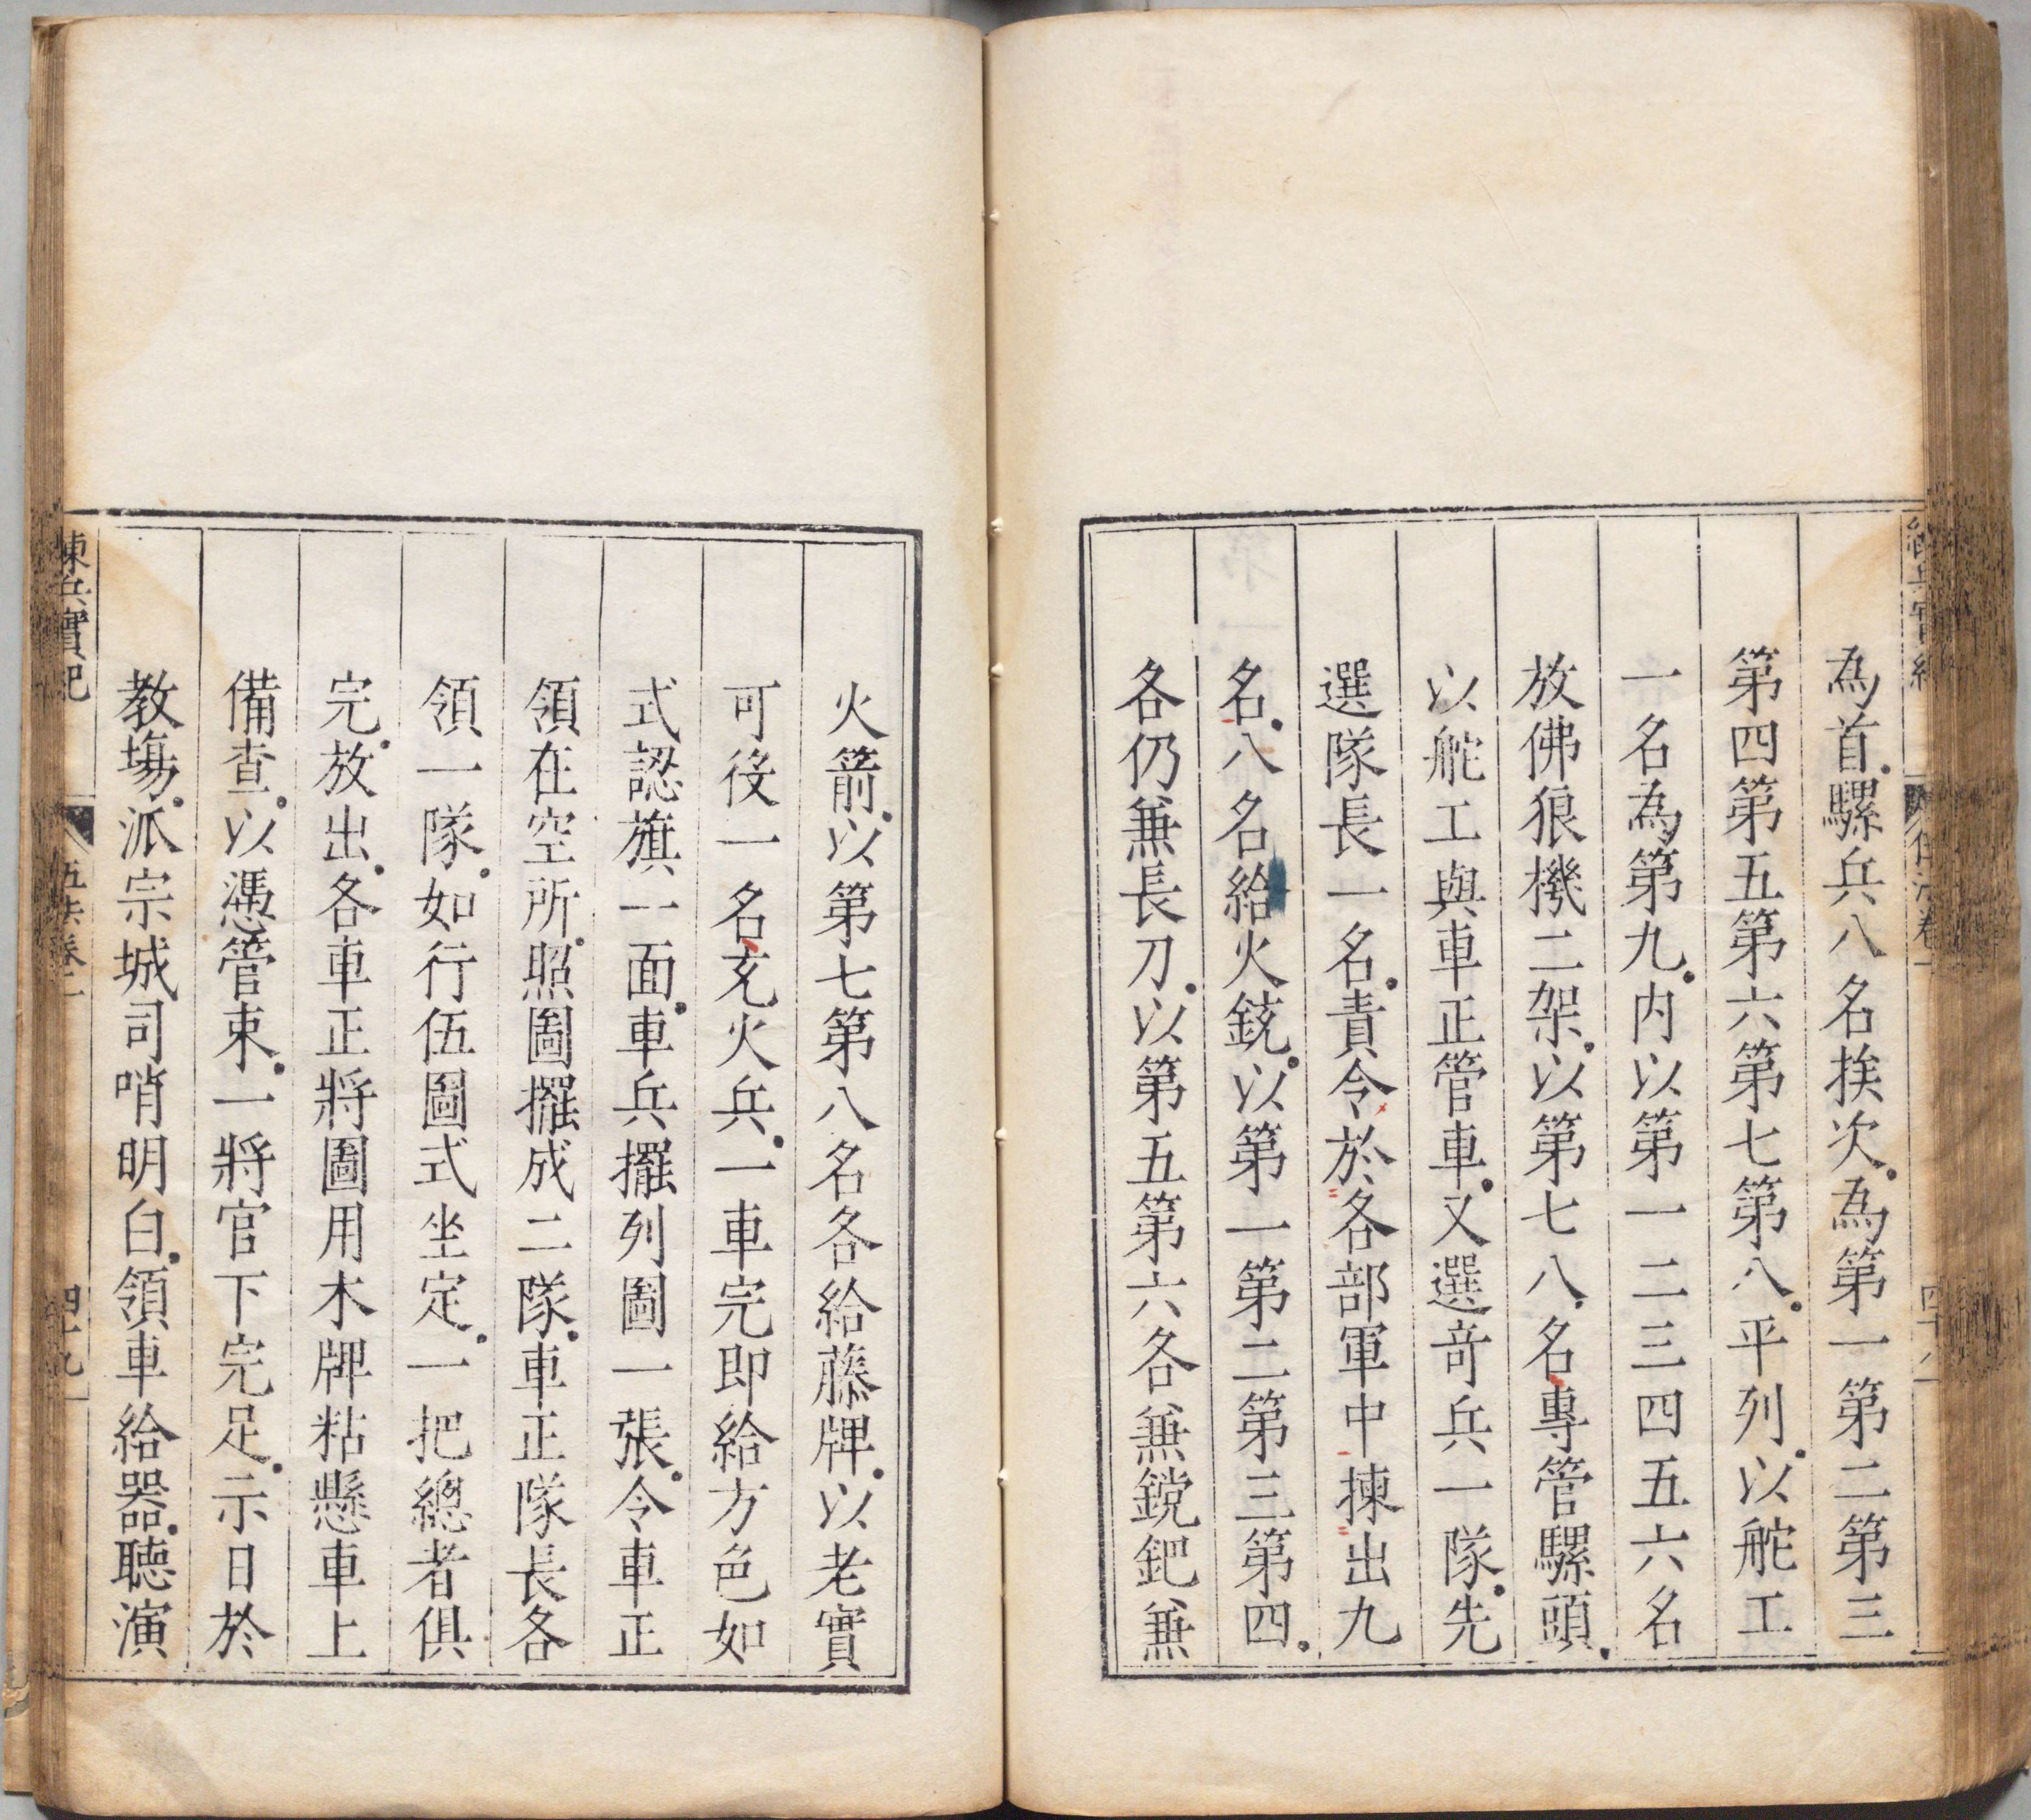 為首騾兵八名挨次為第一第二第三
第四第五第六第七第八平列以舵工
一名為第九内以第一二三四五六名
放佛狼機二架以第七八名專管騾頭
以舵工與車正管車又選竒兵一隊先
選隊長一名責令於各部軍中揀出九
名八名給火銃以第一第二第三第四
各仍兼長刀以第五第六各兼鎲鈀兼
火箭以第七第八名各給藤牌以老實
可役一名充火兵一車完即給方色如
式認旗一面車兵擺列圖一張令車正
領在空所照圖擺成二隊車正隊長各
領一隊如行伍圖式坐定一把總者俱
完放出各車正將圖用木牌粘懸車上
備查以憑管束一將官下完足示日於
教塲派宗城司哨明白領車給器聽演
練兵實紀